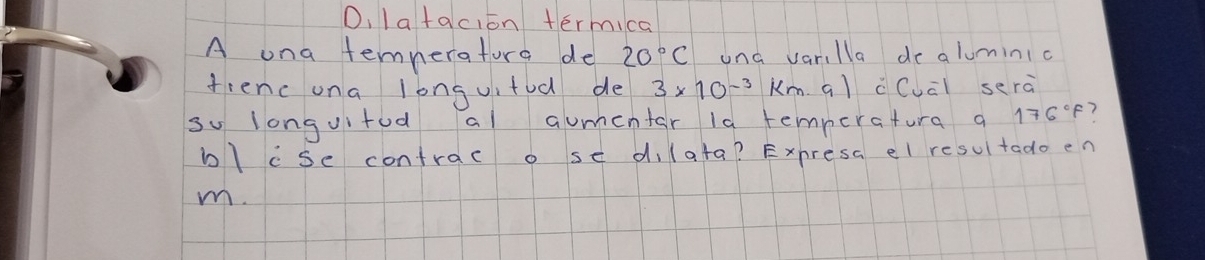 Dilatación térmica
A una temperatura de 20°C una varilla de aluminio
tiene una longuitud de 3x10-³ Km. a) ¿Cuál será
su longuitud al aumentar la temperatura a 176°F?
b) ¿Se contrae o se dilata? Expresa el resultado en
m.